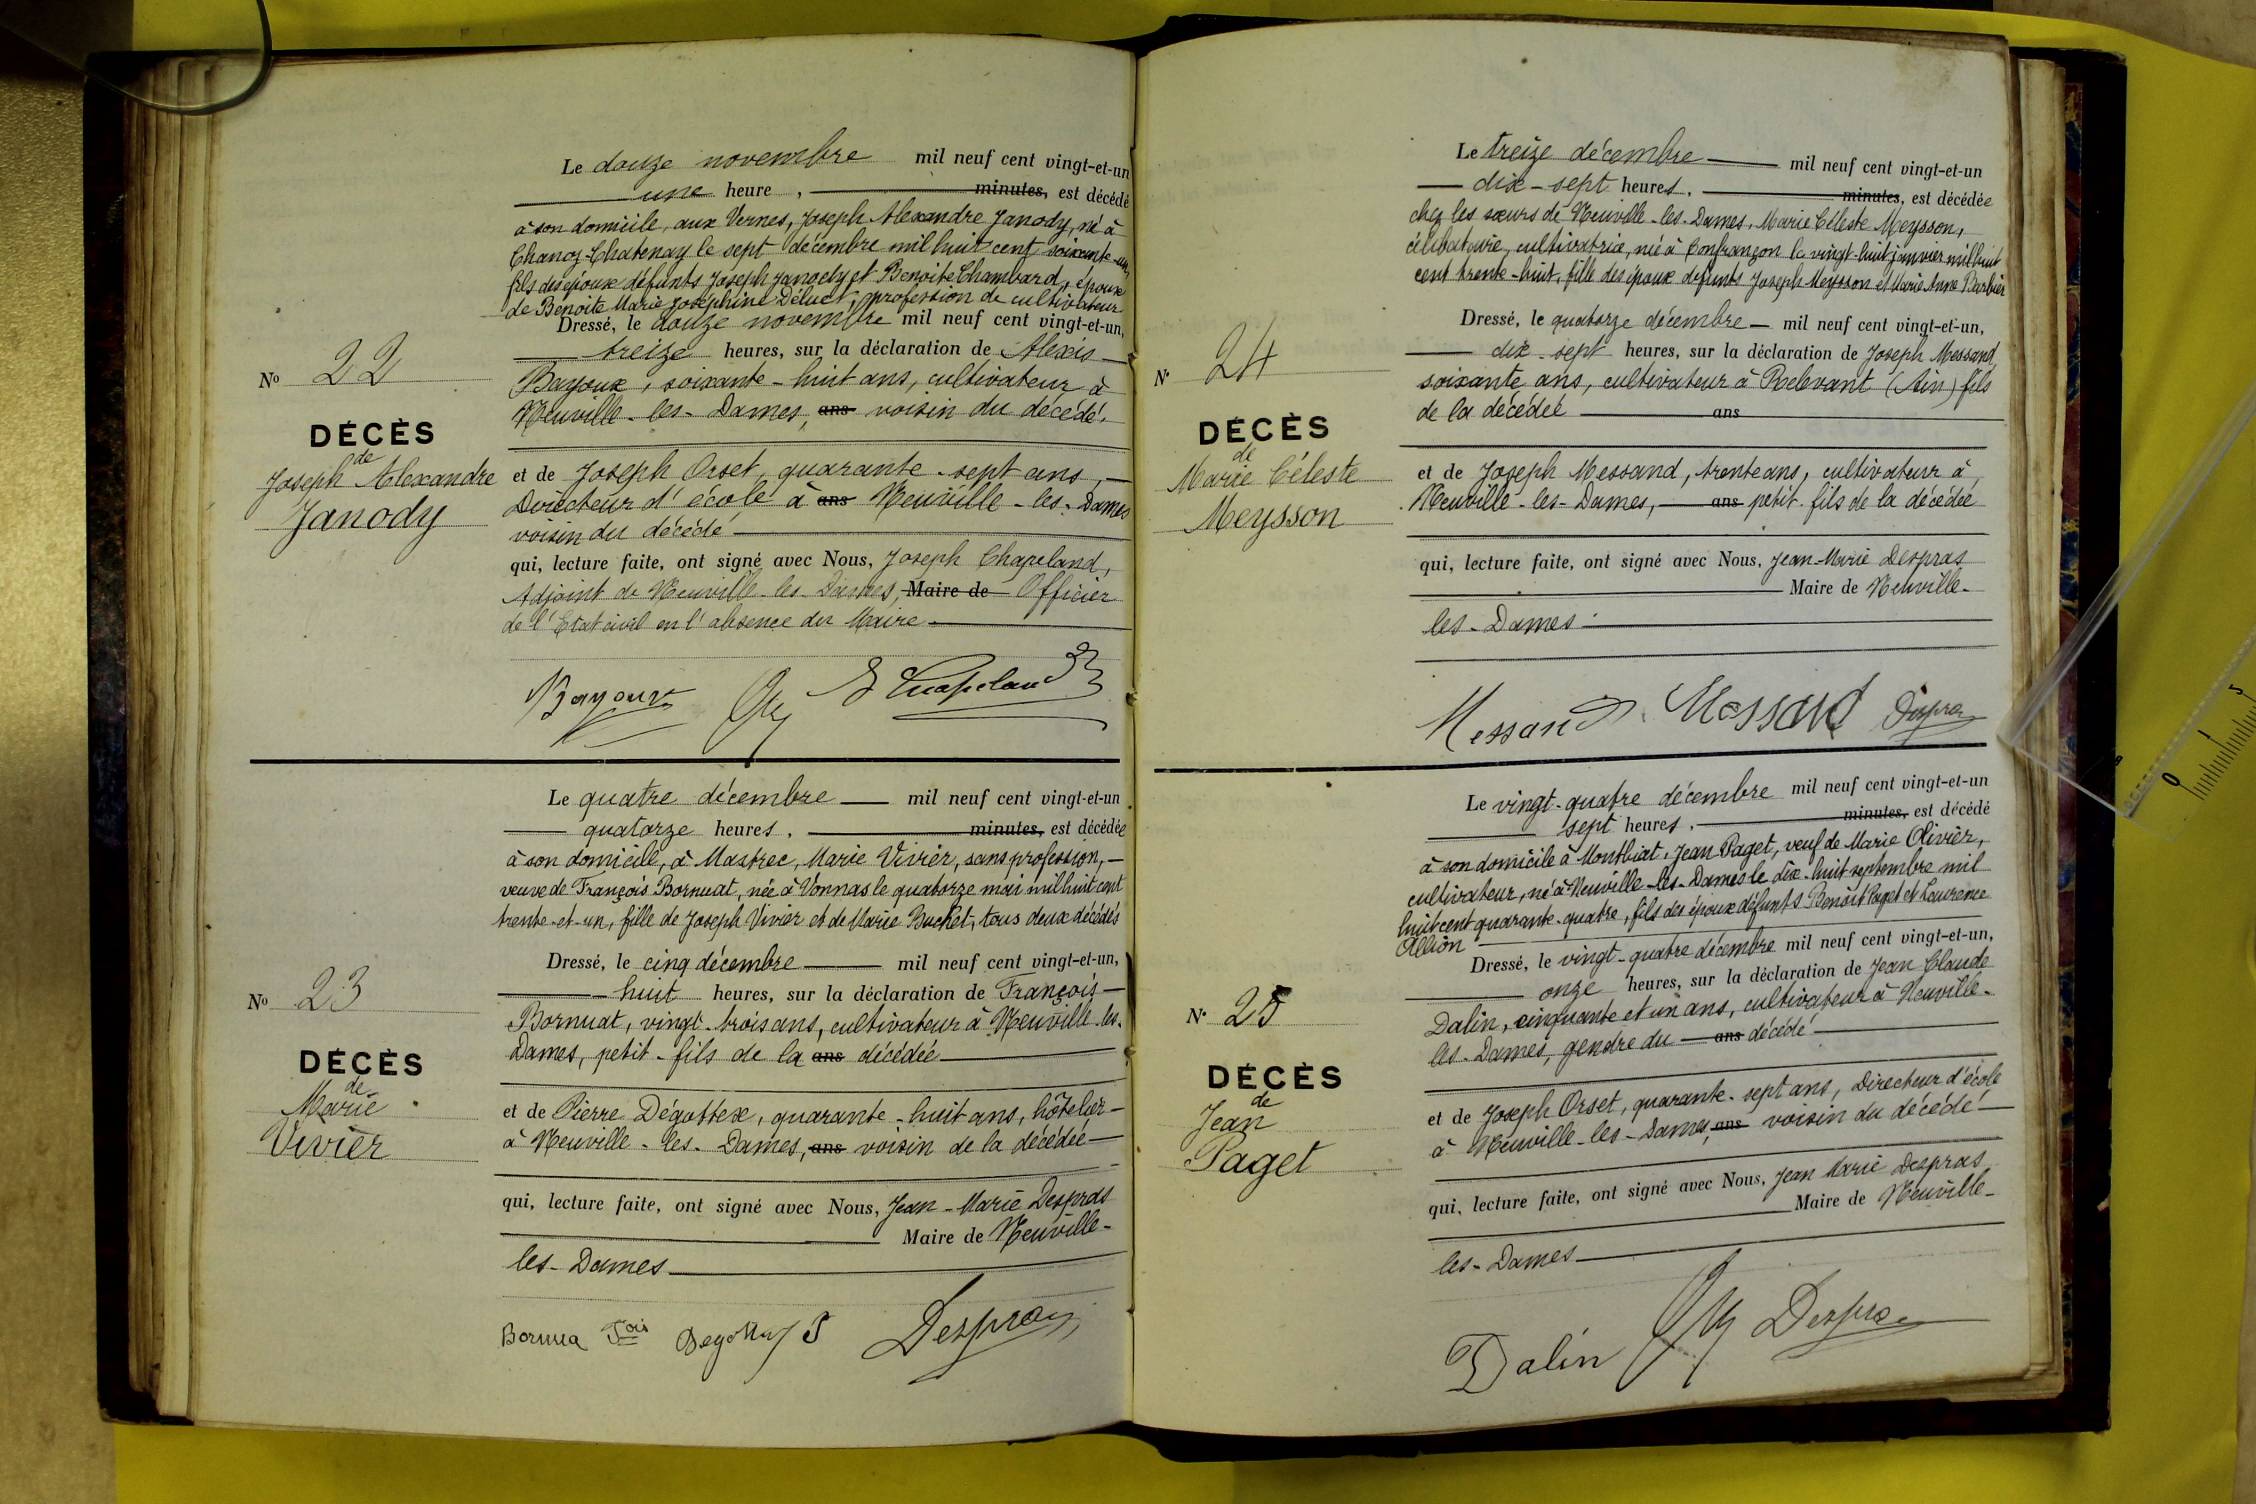 Le douze novembre mil neuf cent vingt-et-un
une heure , minutes, est décédé
à son domicile, aux Vernes, Joseph Alexandre Janody, né à
Chanoz-Chatenay le sept décembre mil huit cent soixante-un,
fils des époux défunts Joseph Janody et Benoite Chambard, époux
de Benoite Marie Joséphine Déluet, profession de cultivateur
Dressé, le douze novembre mil neuf cent vingt-et-un,
treize heures, sur la déclaration de Alexis
Bayoux, soixante-huit ans, cultivateur à
Neuville-les-Dames, ans voisin du décédé,
No 22
DÉCÈS
de
Joseph Alexandre
Janody
et de Joseph Orset, quarante-sept ans,
Directeur d'école à ans Neuville-les-Dames
voisin du décédé
qui, lecture faite, ont signé avec Nous, Joseph Chapeland,
Adjoint de Neuville-les-Dames, Maire de Officier
de l'Etat civil en l'absence du Maire
Bayoux Chapeland
Le quatre décembre mil neuf cent vingt-et-un
quatorze heures, minutes, est décédée
à son domicile, à Mastrec, Marie Vivier, sans profession,
veuve de François Bornuat, née à Vonnas le quatorze mai mil huit cent
trente-et-un, fille de Joseph Vivier et de Marie Buchet, tous deux décédés
Dressé, le cinq décembre mil neuf cent vingt-et-un,
huit heures, sur la déclaration de François
Bornuat, vingt-trois ans, cultivateur à Neuville-les-
Dames, petit-fils de la ans décédée
No 23
DÉCÈS
de
Marie
Vivier
et de Pierre Dégottex, quarante-huit ans, hôtelier
à Neuville-les-Dames, ans voisin de la décédée
qui, lecture faite, ont signé avec Nous, Jean-Marie Despras
Maire de Neuville-
les-Dames
Bornua Fois Degottex P Despras
Le treize décembre mil neuf cent vingt-et-un
dix-sept heures, minutes, est décédée
chez les sœurs de Neuville-les-Dames, Marie Céleste Meysson,
célibataire, cultivatrice, née à Confrançon le vingt-huit janvier mil huit
cent trente-huit, fille des époux défunts Joseph Meysson et Marie Anne Barbier
Dressé, le quatorze décembre mil neuf cent vingt-et-un,
dix-sept heures, sur la déclaration de Joseph Messand
soixante ans, cultivateur à Relevant (Ain) fils
de la décédée ans
No 24
DÉCÈS
de
Marie Céleste
Meysson
et de Joseph Messand, trente ans, cultivateur à,
Neuville-les-Dames, ans petit-fils de la décédée
qui, lecture faite, ont signé avec Nous, Jean-Marie Despras
Maire de Neuville-
les-Dames
Messand Messand Despras
Le vingt-quatre décembre mil neuf cent vingt-et-un
sept heures, minutes, est décédé
à son domicile à Montbiat, Jean Paget, veuf de Marie Olivier,
cultivateur, né à Neuville-les-Dames le dix-huit septembre mil
huit cent quarante-quatre, fils des époux défunts Benoît Paget et Laurence
Allion
Dressé, le vingt-quatre décembre mil neuf cent vingt-et-un,
onze heures, sur la déclaration de Jean Claude
Dalin, cinquante et un ans, cultivateur à Neuville-
les-Dames, gendre du ans décédé
No 25
DÉCÈS
de
Jean
Paget
et de Joseph Orset, quarante-sept ans, Directeur d'école
à Neuville-les-Dames, ans voisin du décédé
qui, lecture faite, ont signé avec Nous, Jean Marie Despras
Maire de Neuville-
les-Dames
Dalin Despras
0 5